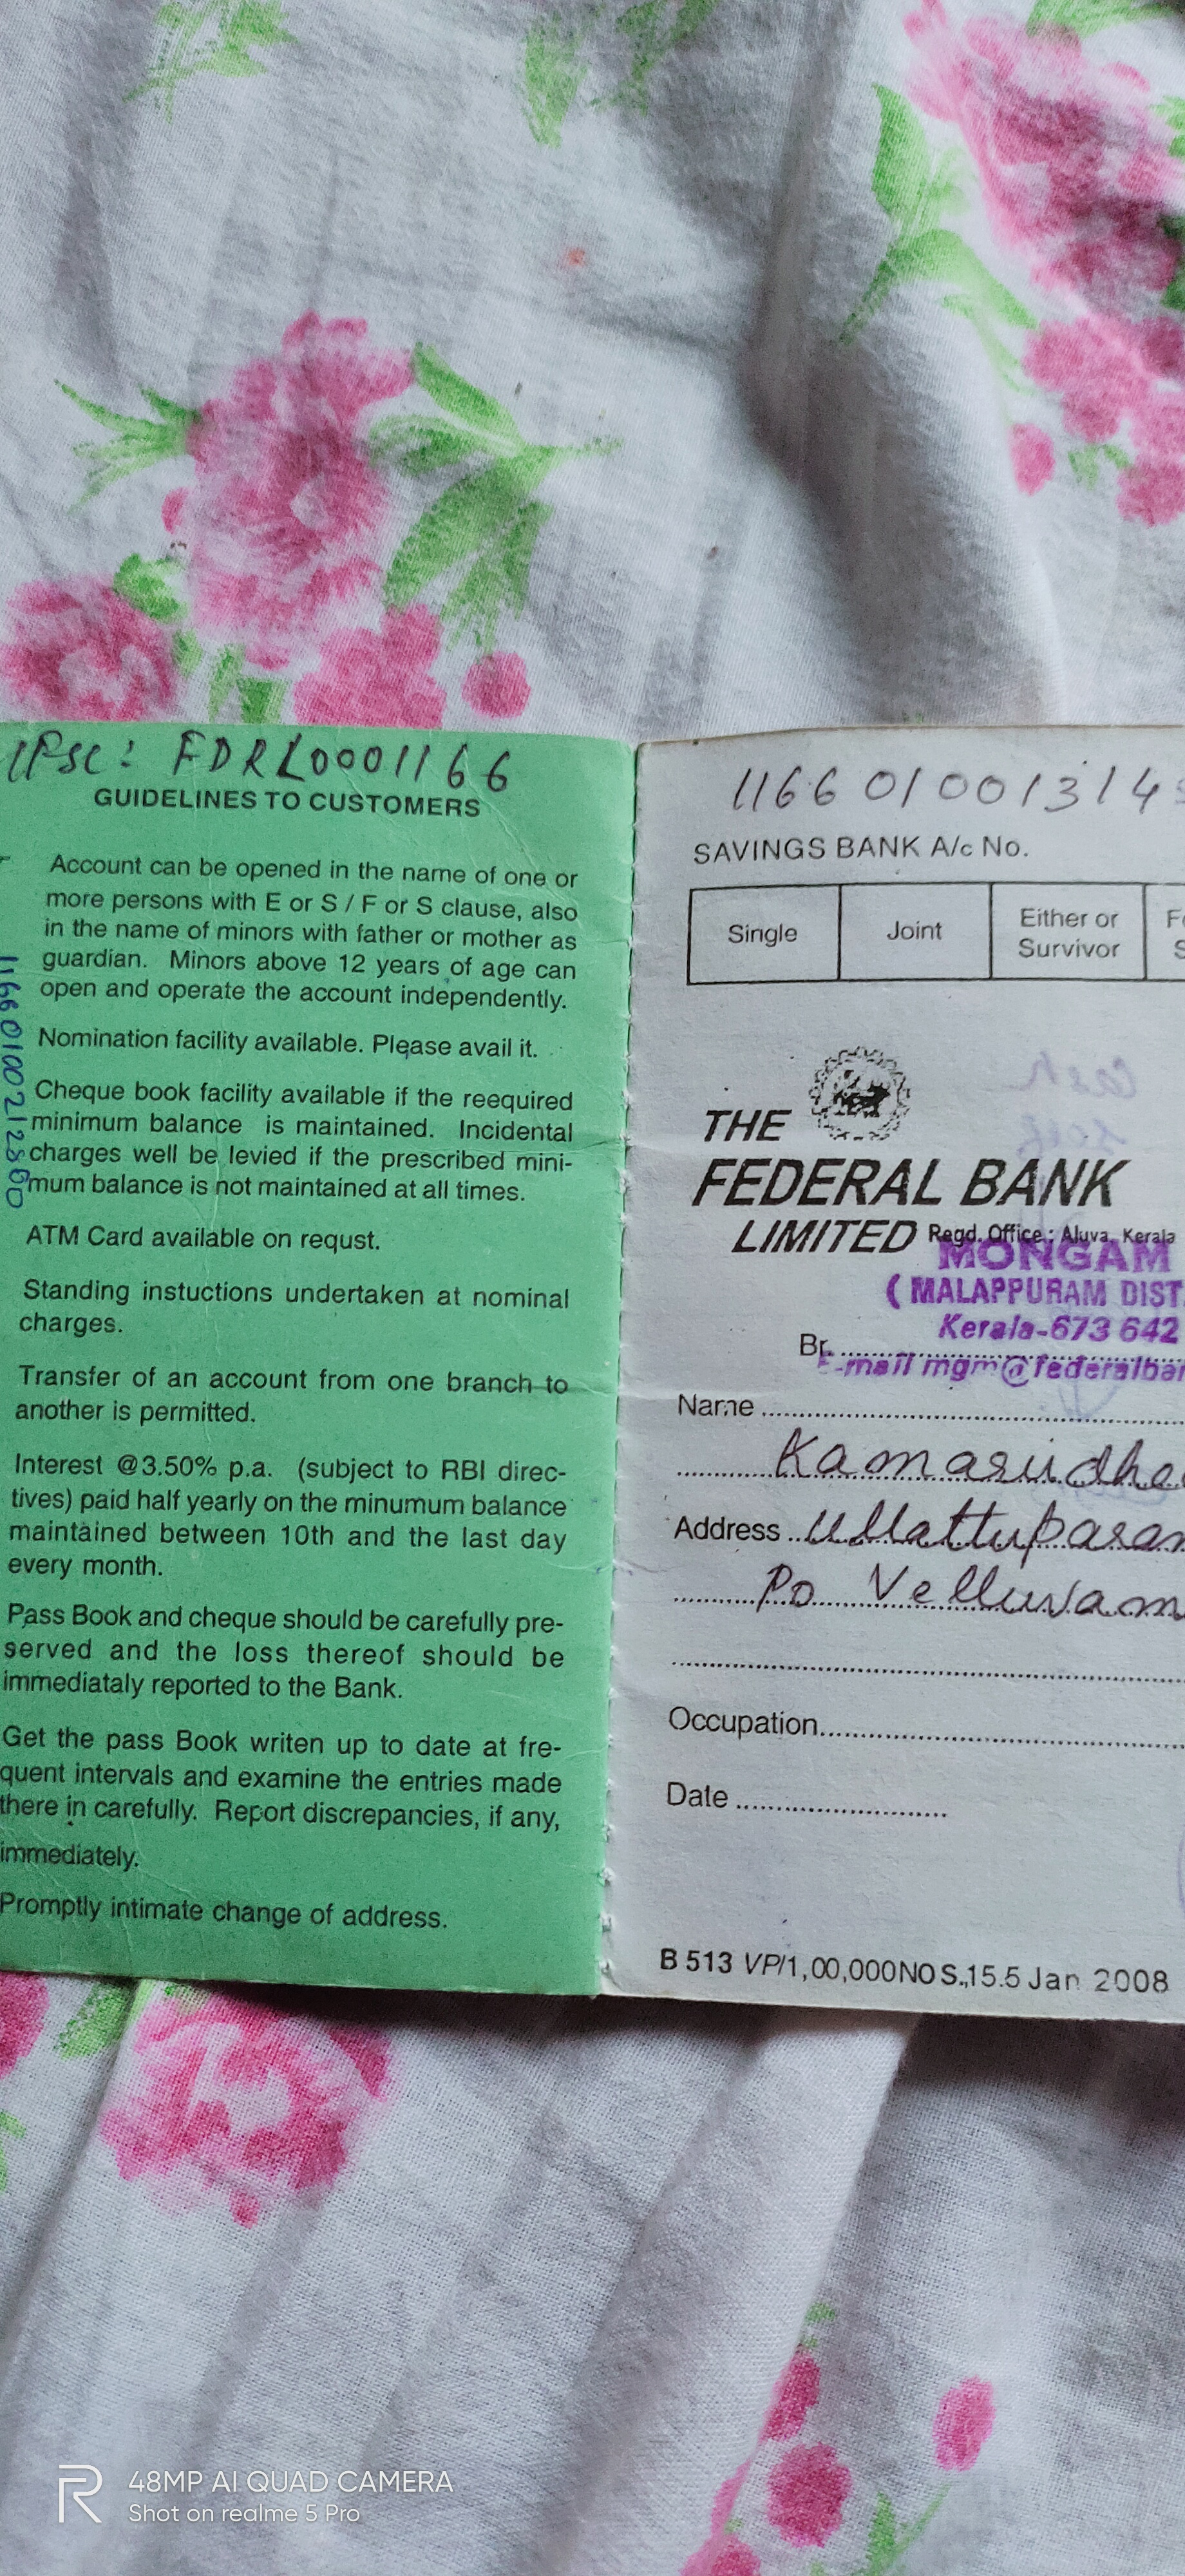 IFSC: FDRL0001166
GUIDELINES TO CUSTOMERS
Account can be opened in the name of one or
more persons with E or S / F or S clause, also
in the name of minors with father or mother as
guardian. Minors above 12 years of age can
open and operate the account independently.
Nomination facility available. Please avail it.
Cheque book facility available if the reequired
minimum balance is maintained. Incidental
charges well be levied if the prescribed mini-
mum balance is not maintained at all times.
ATM Card available on requst.
Standing instuctions undertaken at nominal
charges.
Transfer of an account from one branch to
another is permitted.
Interest @3.50% p.a. (subject to RBI direc-
tives) paid half yearly on the minumum balance
maintained between 10th and the last day
every month.
Pass Book and cheque should be carefully pre-
served and the loss thereof should be
immediataly reported to the Bank.
Get the pass Book writen up to date at fre-
quent intervals and examine the entries made
there in carefully. Report discrepancies, if any,
immediately.
Promptly intimate change of address.
116601001314
SAVINGS BANK A/c No.
Single Joint Either or
Survivor
THE
FEDERAL BANK
LIMITED Regd. Office : Aluva, Kerala
MONGAM
( MALAPPURAM DIST.
Kerala-673 642
Br.
E-mail mgm@federalban
Name
Kamarudhe
Address Ullattuparam
Po Velluvam
Occupation
Date
B 513 VP/1,00,000NOS.,15.5 Jan 2008
48MP AI QUAD CAMERA
Shot on realme 5 Pro